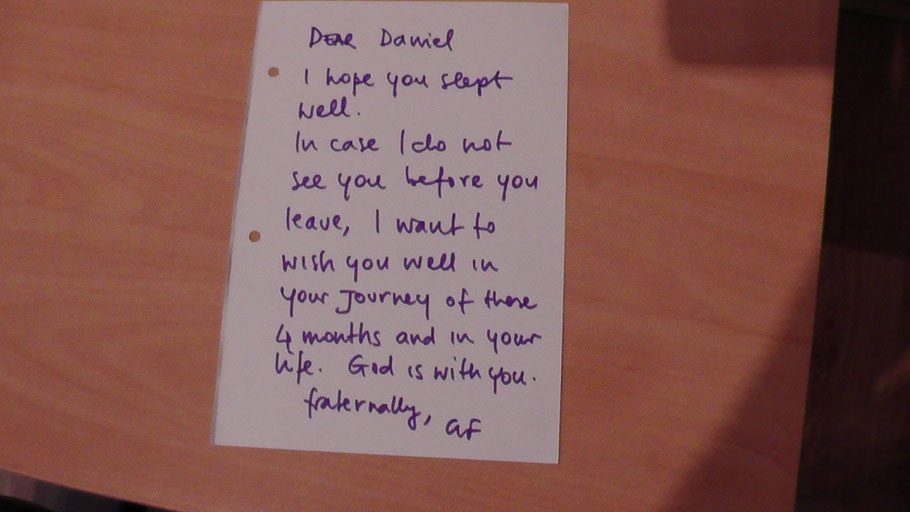 Dear Daniel
I hope you slept
well.
In case I do not
see you before you
leave, I want to
wish you well in
your Journey of these
4 months and in your
life. God is with you.
fraternally,
af